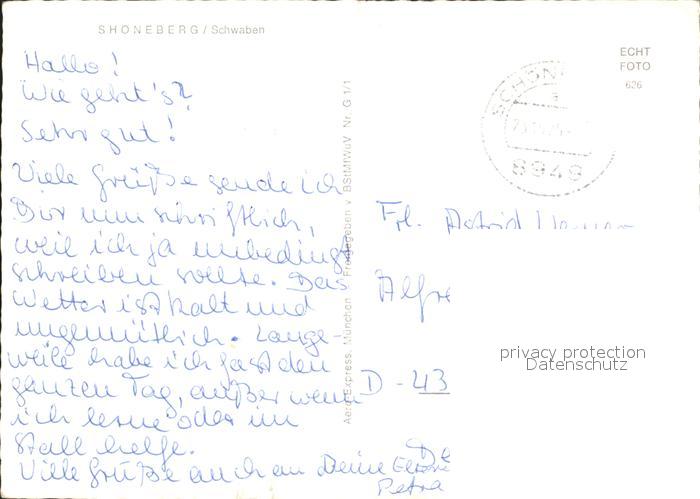 SHÖNEBERG / Schwaben
Hallo!
Wie geht's?
Sehr gut!
Viele Grüße sende ich
Dir nun schriftlich,
weil ich ja unbedingt
schreiben sollte. Das
Wetter ist kalt und
ungemütlich. Lange-
weile habe ich fast den
ganzen Tag, außer wenn
ich lerne oder im
Stall helfe.
Viele Grüße auch an Deine Eltern
Petra
Aero Express, München Freigegeben v. BStMfWuV Nr. G 1/1
ECHT
FOTO
626
SCHÖN
a
8949
Frl. Astrid
Alfre
D - 43
privacy protection
Datenschutz